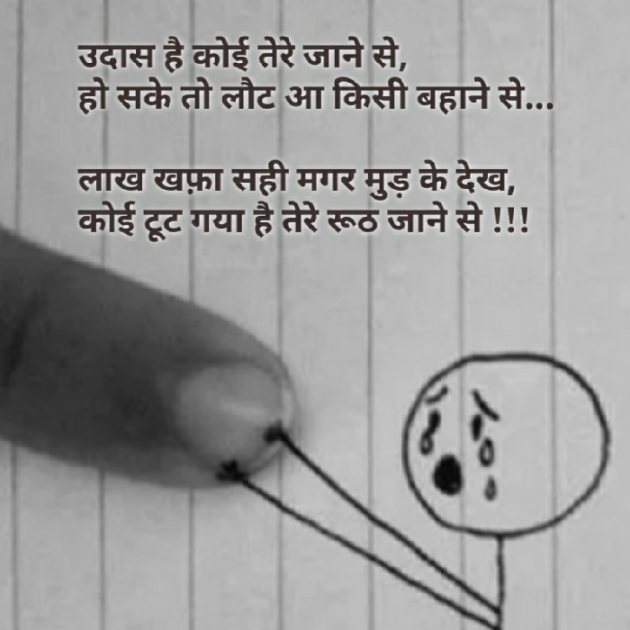 उदास है कोई तेरे जाने से,
हो सके तो लौट आ किसी बहाने से...
लाख खफ़ा सही मगर मुड़ के देख,
कोई टूट गया है तेरे रूठ जाने से !!!